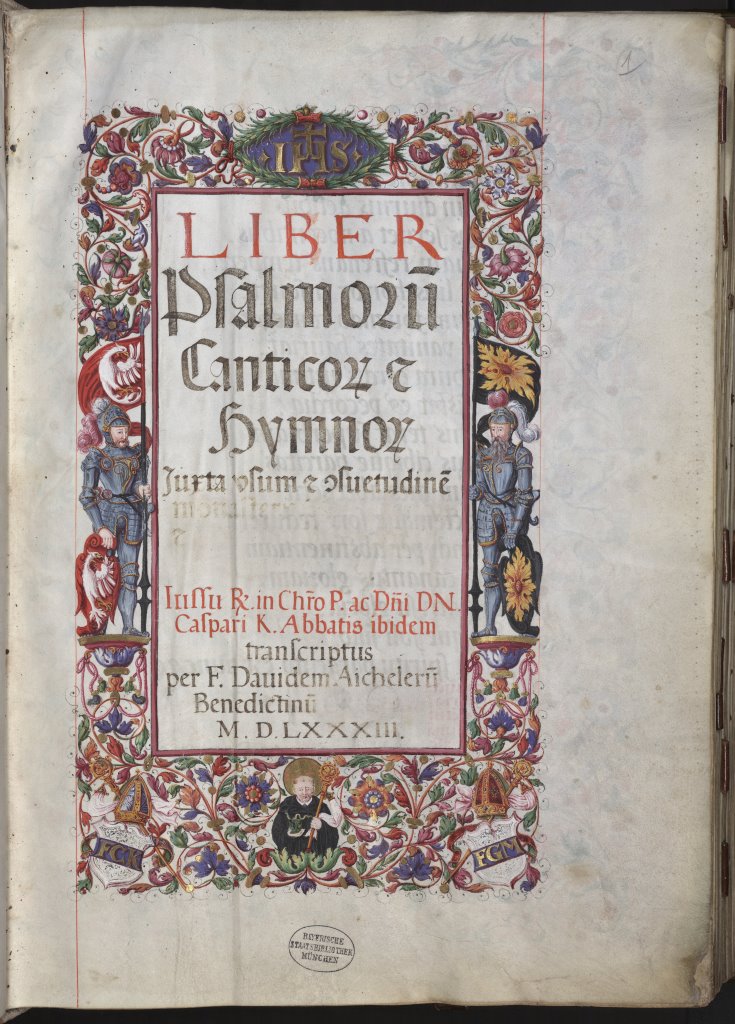 1
IHS
LIBER
Psalmorū
Canticoꝝ ⁊
Hymnoꝝ
Juxta vsum ⁊ ꝯsuetudinē
monasterij
⁊
Iussu R. in Chro P. ac Dñi DN.
Caspari K. Abbatis ibidem
transcriptus
per F. Dauidem Aichelerū
Benedictinū
M. D. LXXXIII.
FCK
FGM
BAYERISCHE
STAATSBIBLIOTHEK
MÜNCHEN